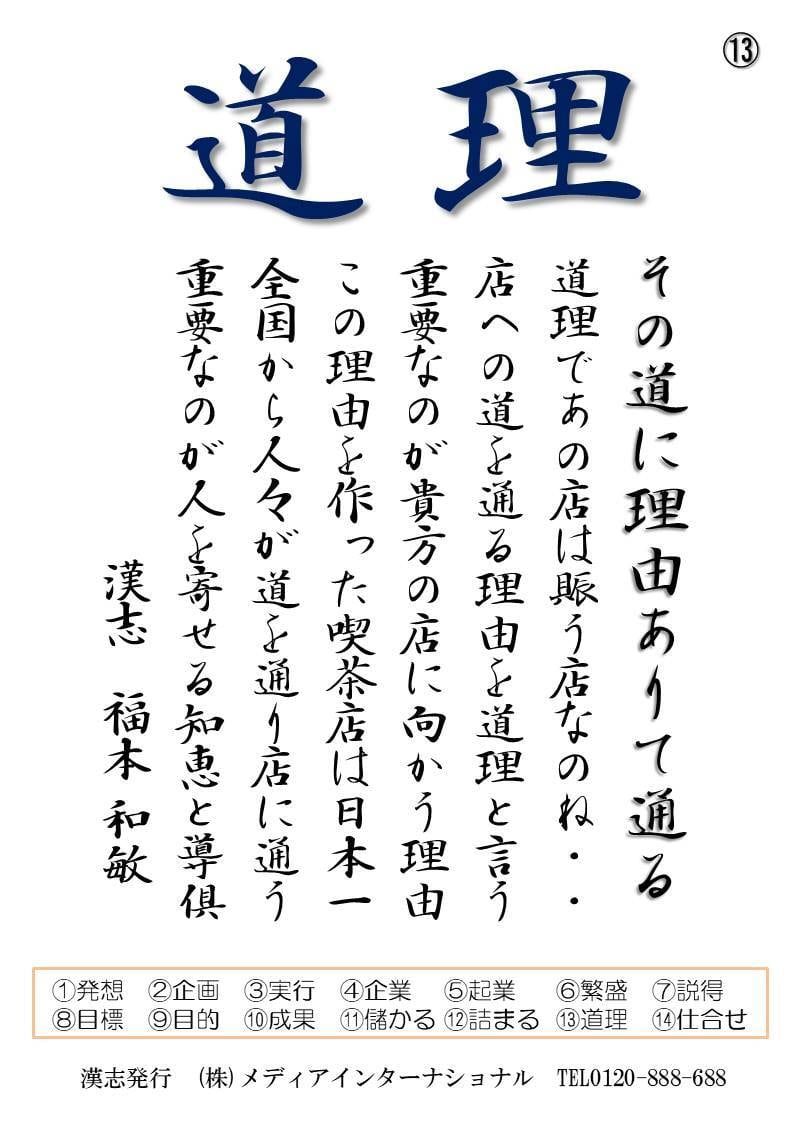 ⑬
道理
その道に理由ありて通る
道理であの店は賑う店なのね・・
店への道を通る理由を道理と言う
重要なのが貴方の店に向かう理由
この理由を作った喫茶店は日本一
全国から人々が道を通り店に通う
重要なのが人を寄せる知恵と導倶
漢志 福本和敏
①発想 ②企画 ③実行 ④企業 ⑤起業 ⑥繁盛 ⑦説得
⑧目標 ⑨目的 ⑩成果 ⑪儲かる ⑫詰まる ⑬道理 ⑭仕合せ
漢志発行 (株)メディアインターナショナル TEL0120-888-688